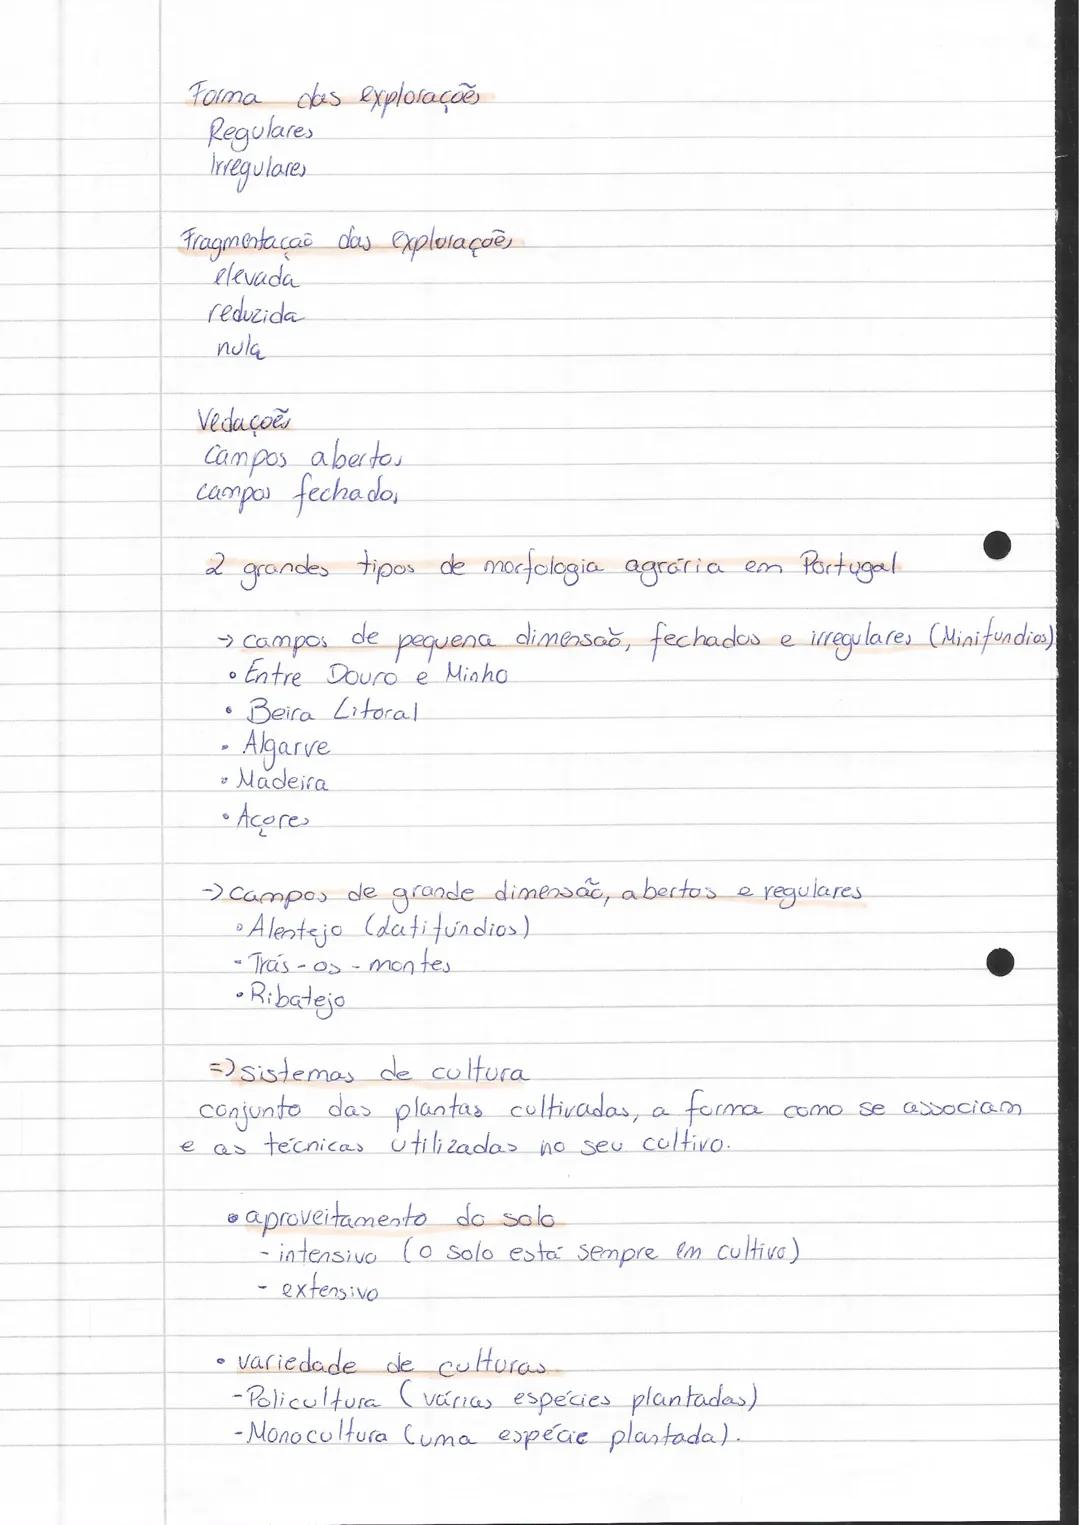 Forma das explorações
Regulares
Irregulares
Fragmentação das explorações
elevada
reduzida
nula
Vedações
Campos abertos
campos fechados
2 grandes tipos de morfologia agrária em Portugal
→ campos de pequena dimensão, fechados e irregulares (Minifundios)
• Entre Douro e Minho
• Beira Litoral
• Algarve
• Madeira
• Açores
→ campos de grande dimensão, abertos e regulares
• Alentejo (Latifúndios)
- Trás-os-montes
• Ribatejo
=> sistemas de cultura
conjunto das plantas cultivadas, a forma como se associam
e as técnicas utilizadas no seu cultivo.
• aproveitamento do solo
- intensivo (o solo está sempre em cultivo)
- extensivo
• variedade de culturas
- Policultura (várias espécies plantadas)
- Monocultura (uma espécie plantada).